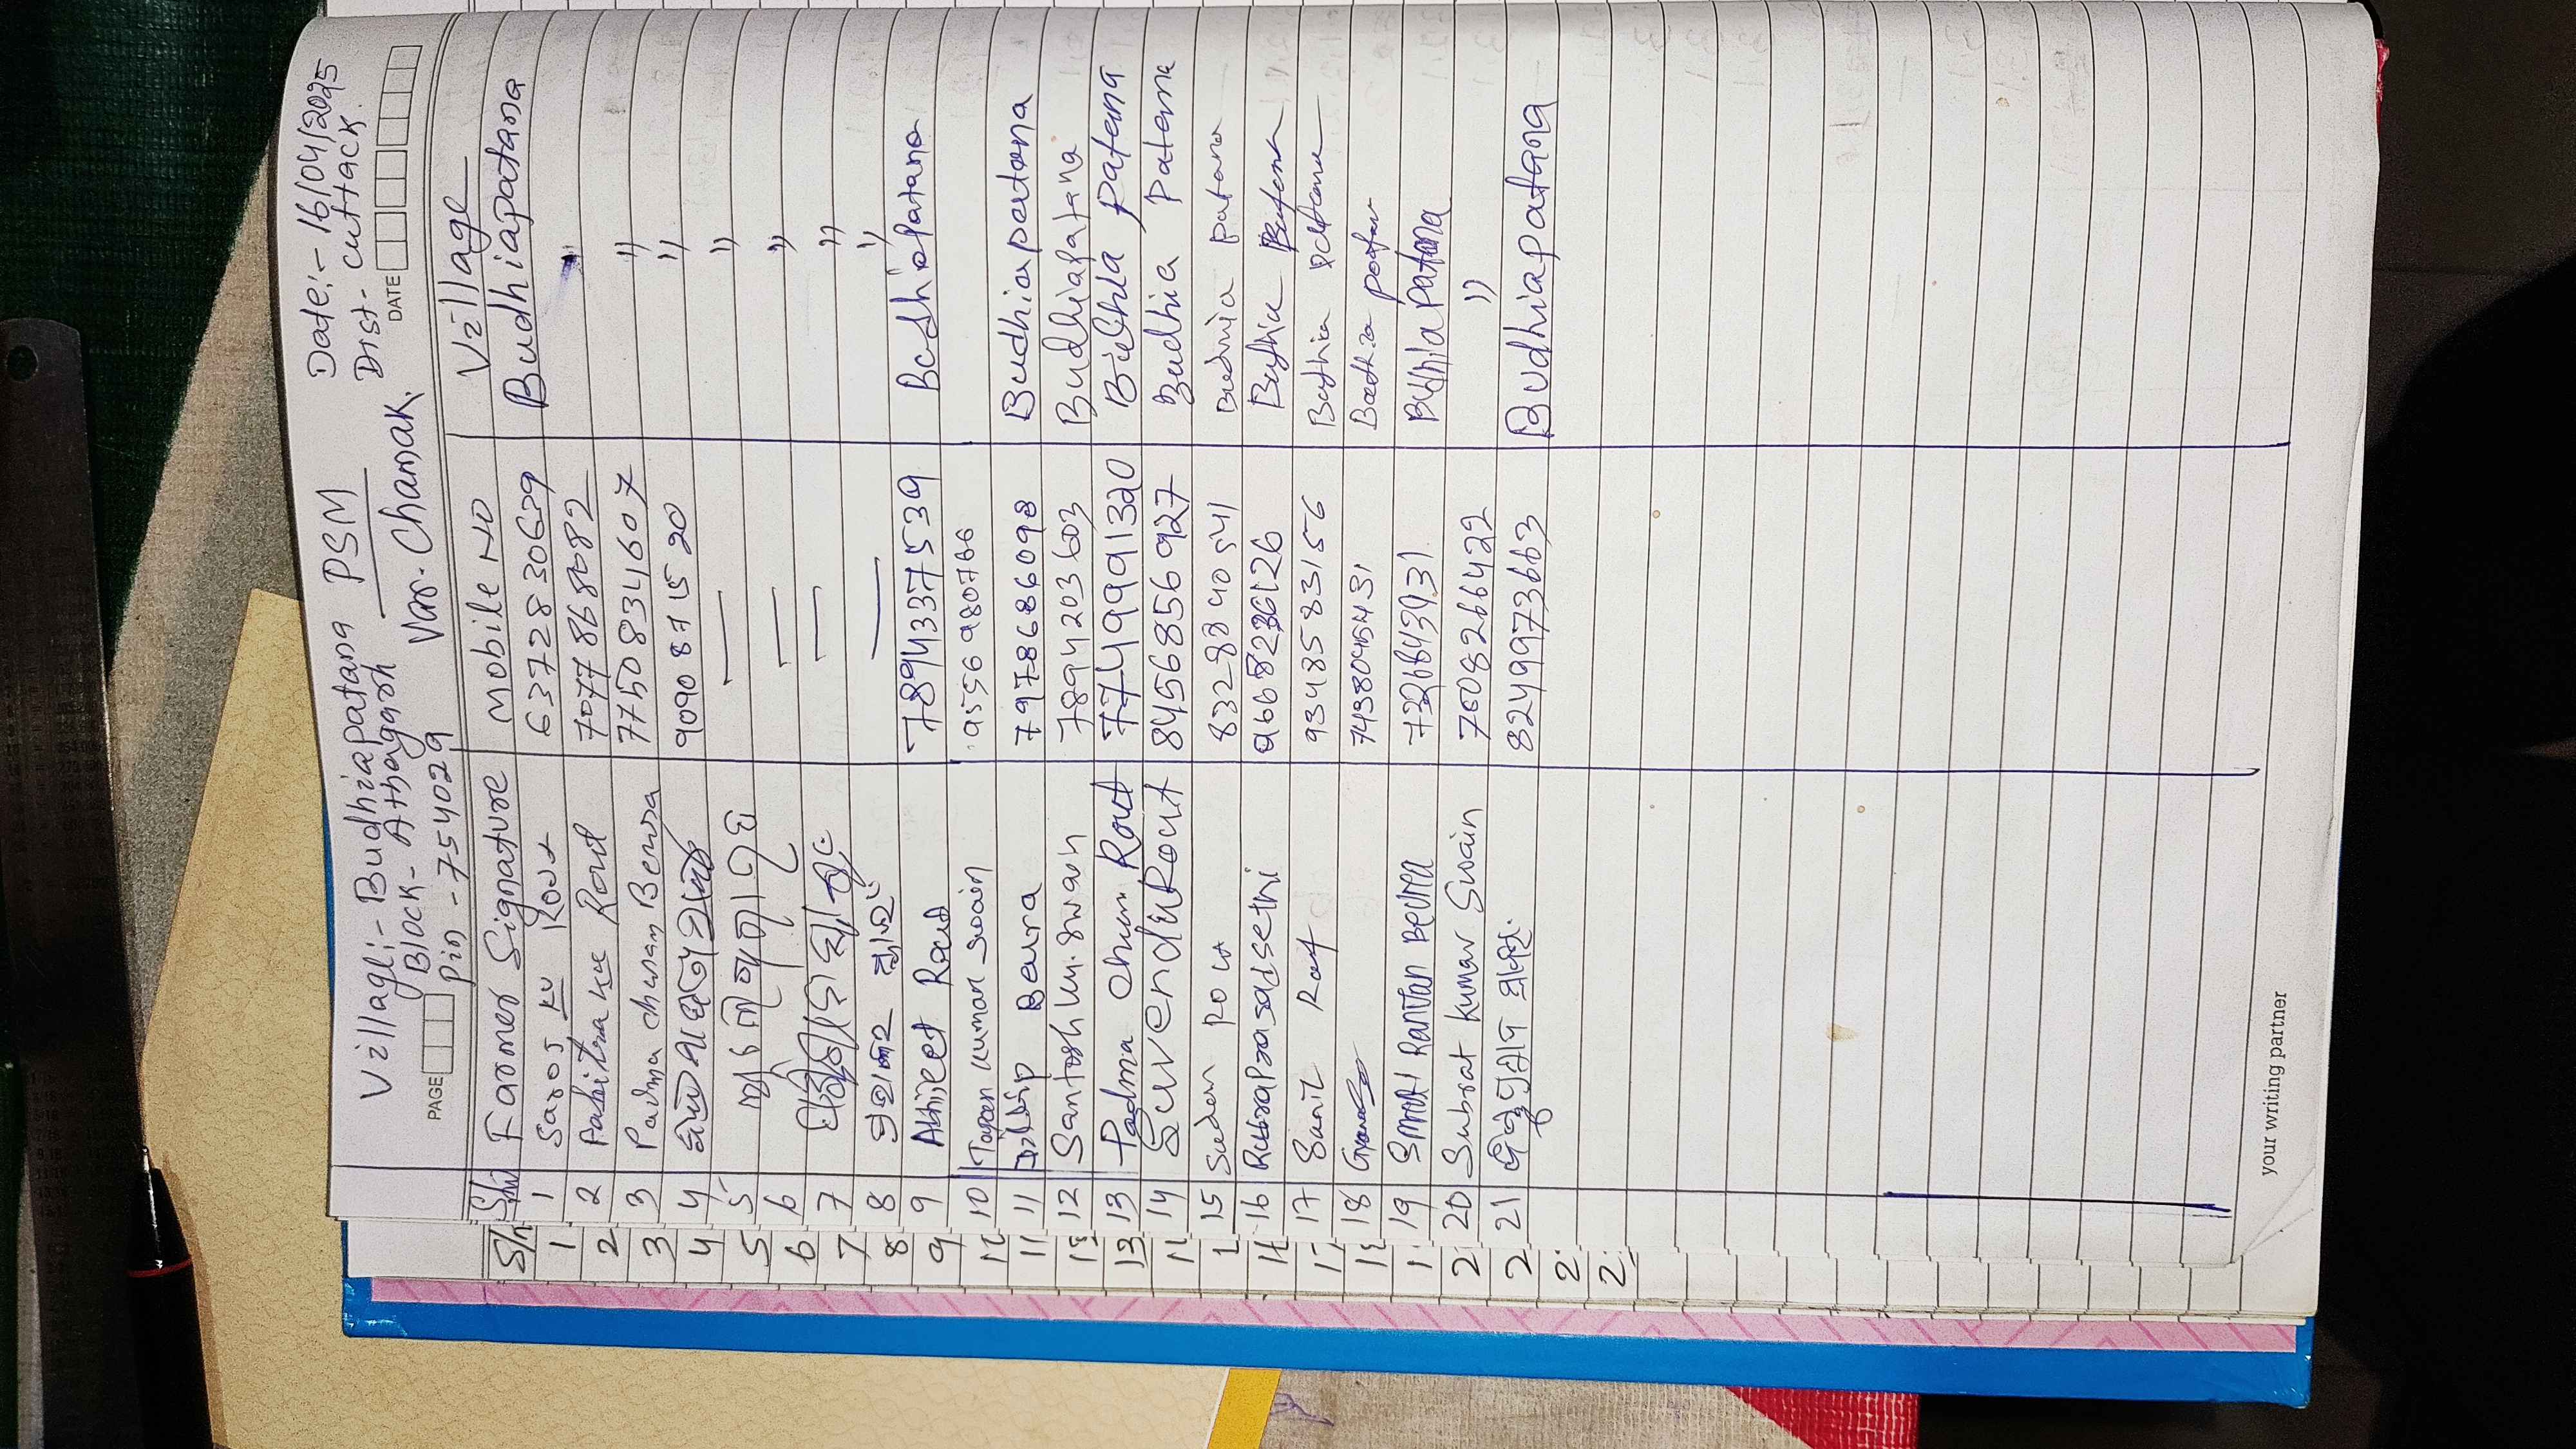 Village:- Budhiapatana PSM Date:- 16/04/2025
Block- Athagarh Dist- Cuttack
Pin - 754029 Var. Chamak
PAGE DATE
Farmer Signature Mobile No Village
1 Saroj Ku Rout 6372830679 Budhiapatana
2 Pabitra Ku Rout 7077868082 "
3 Padma charan Beura 7750834607 "
4 9090871520 "
5 — "
6 — "
7 — "
8 — "
9 Abhijeet Rout 7894337539 Budhiapatana
10 Tapan Kumar Swain 9556980766
11 Dillip Beura 7978686098 Budhiapatana
12 Santosh Ku. Swain 7894203603 Budhiapatana
13 Padma Charan Rout 7749991320 Budhia Patana
14 Suvendu Rout 8456856927 Budhia Patana
15 Sudam Rout 8328840541 Budhia Patana
16 Rudraprasad Sethi 9668236126 Budhia Patana
17 Sunil Rout 9348583156 Budhia Patana
18 Budhia
19 Smruti Ranjan Beura Budhia Patana
20 Subrat Kumar Swain 7608266422 "
21 8249973663 Budhiapatana
your writing partner